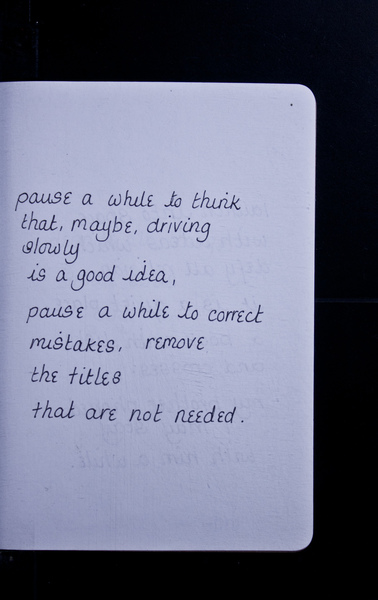 pause a while to think
that, maybe, driving
slowly
is a good idea,
pause a while to correct
mistakes, remove
the titles
that are not needed.